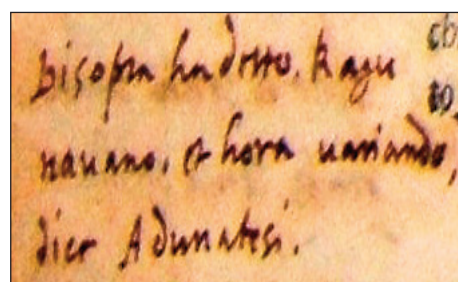 Disopra ha detto. Ragu cb
navano, et hora variando, to
dice Adunatesi.